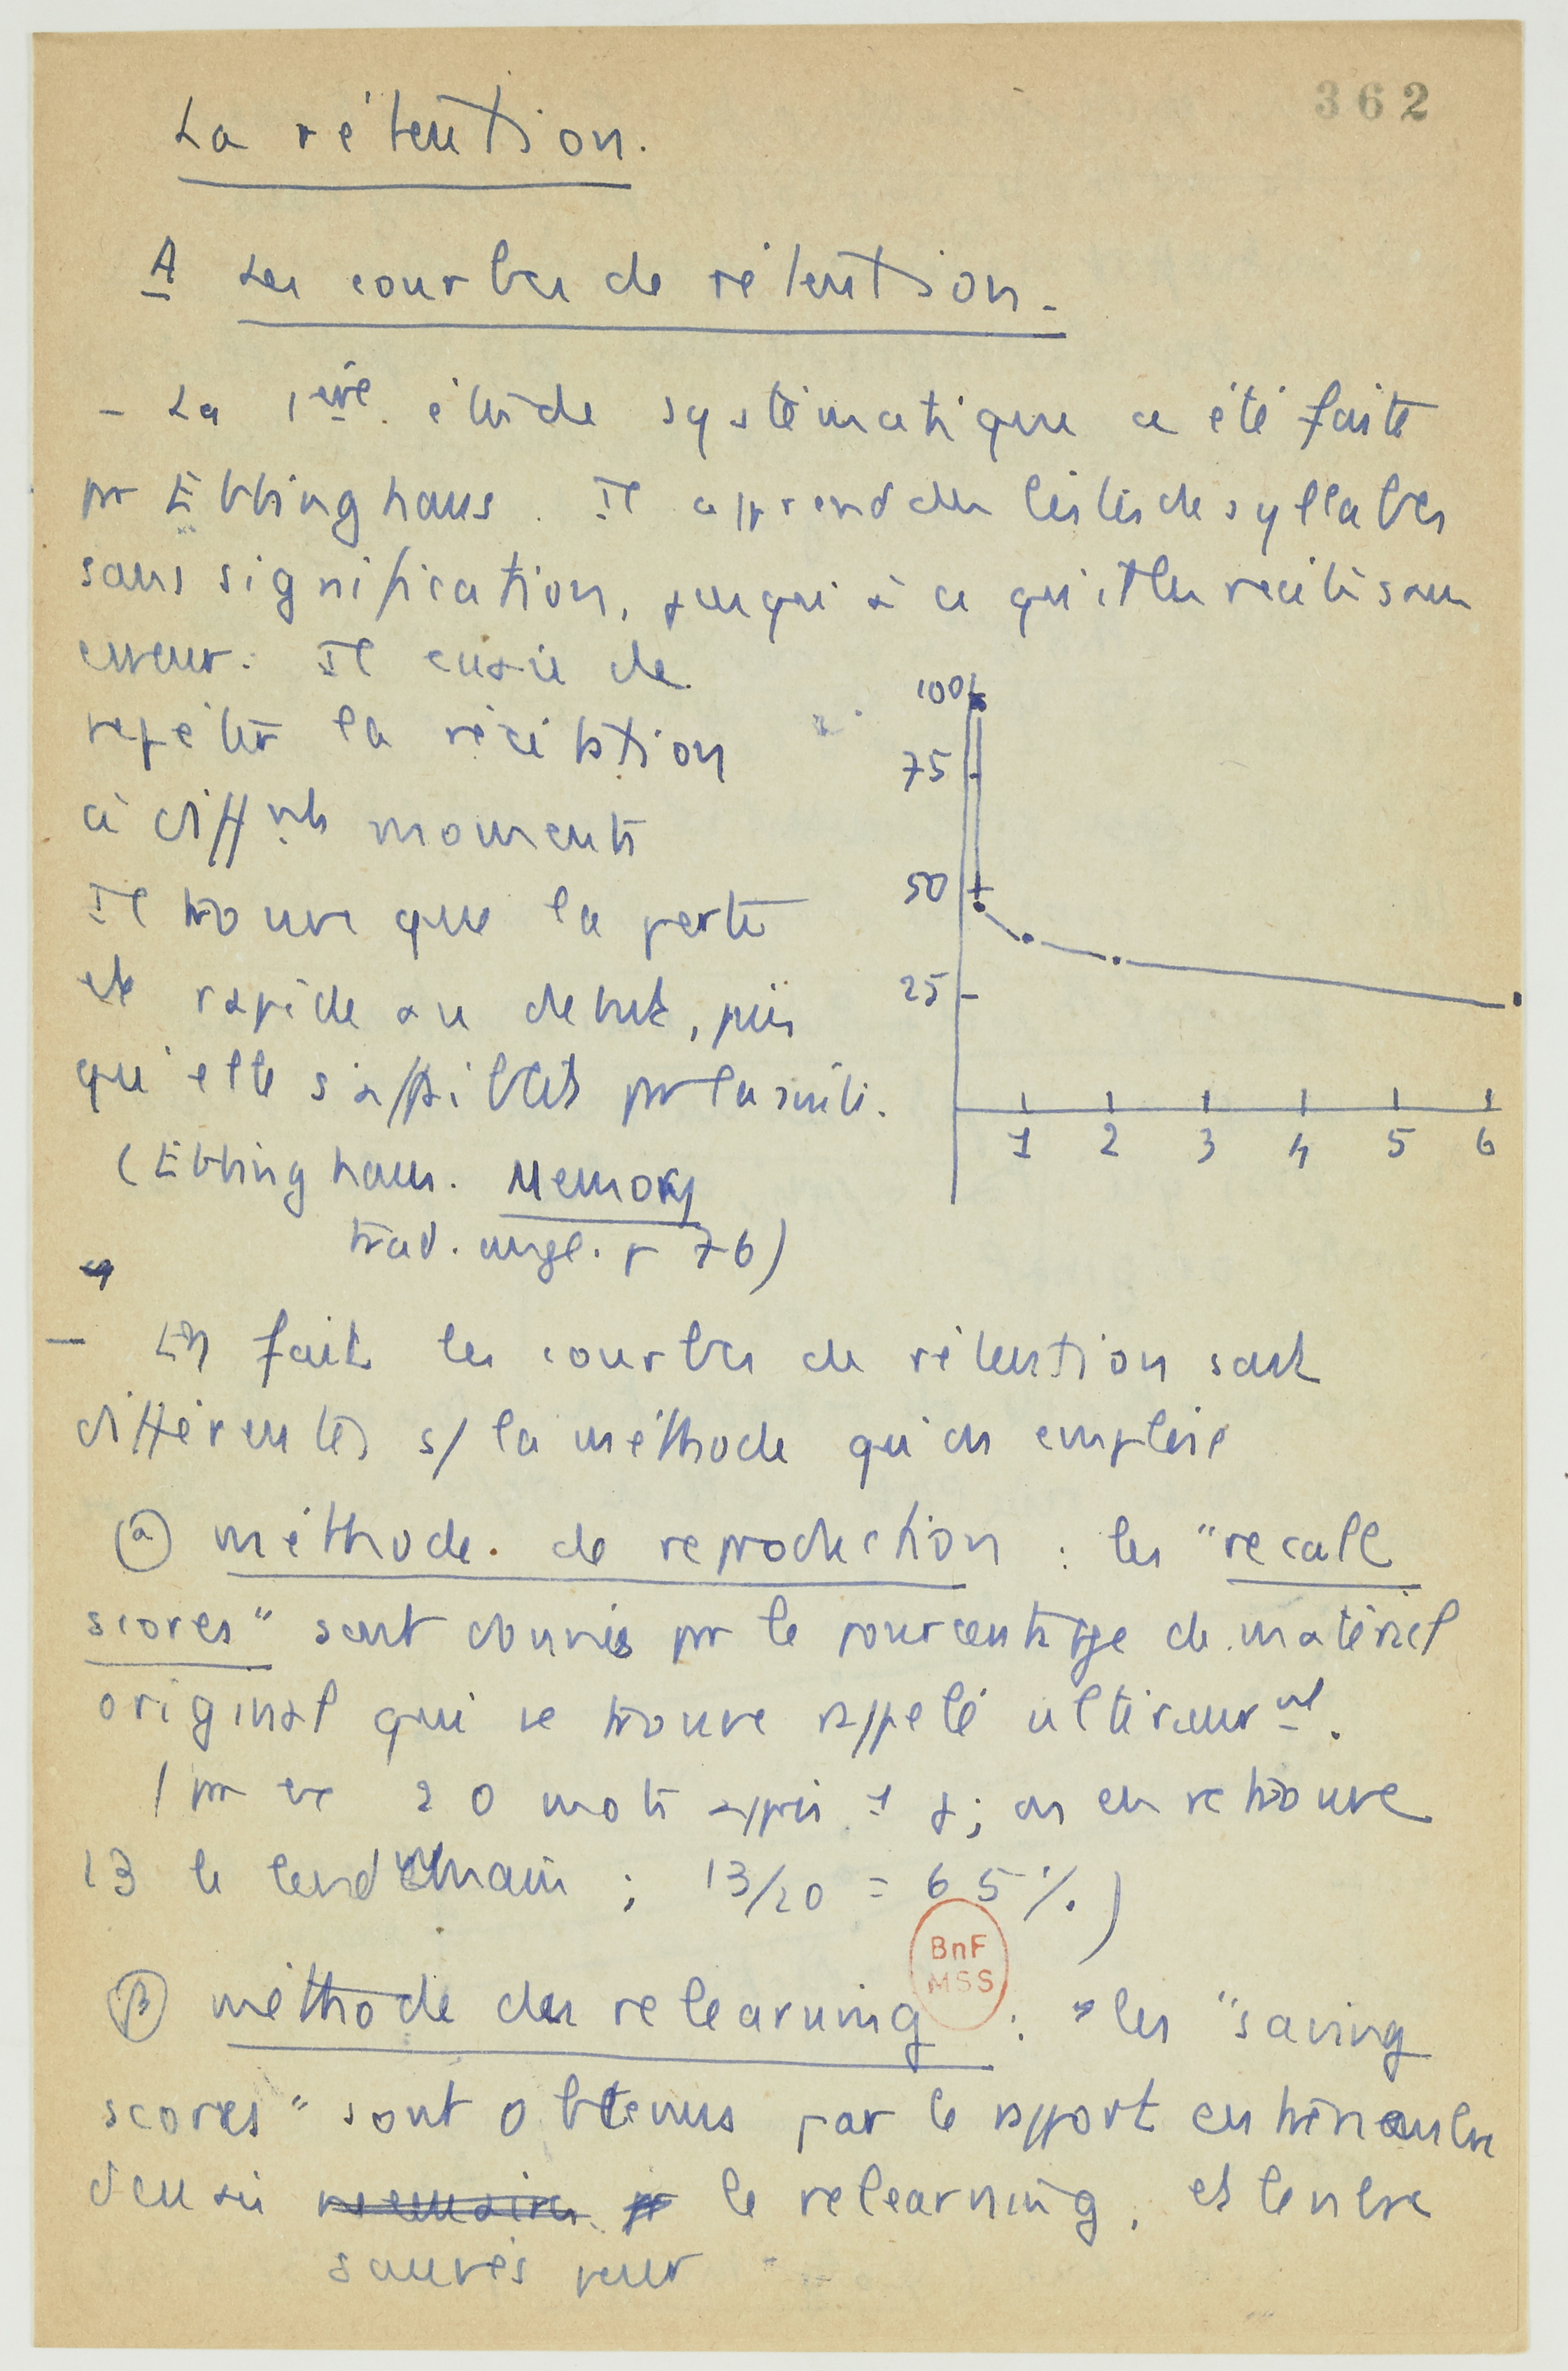 362
La rétention.
A Les courbes de rétention.
- La 1ère étude systématique a été faite
pr Ebbinghaus. Il apprend des listes de syllabes
sans signification, jusqu'à ce qu'il les récite sans
erreur. Il essaie de
répéter la récitation
à diffnts moments
Il trouve que la perte
est rapide au début, puis
qu'elle s'affaiblit pr la suite.
(Ebbinghaus. Memory
trad. angl. p 76)
100%
75
50
25
1 2 3 4 5 6
- En fait les courbes de rétention sont
différentes s/ la méthode qu'on emploie
(α) méthode de reproduction : les "recall
scores" sont donnés pr le pourcentage de matériel
original qui se trouve rappelé ultérieurnt.
(pr ex 20 mots appris 1 j; on en retrouve
13 le lendemain ; 13/20 = 65%)
BnF
MSS
(β) méthode des relearning : les "saving
scores" sont obtenus par le rapport entre le nombre
d'essais sauvés pour le relearning, et le nbre